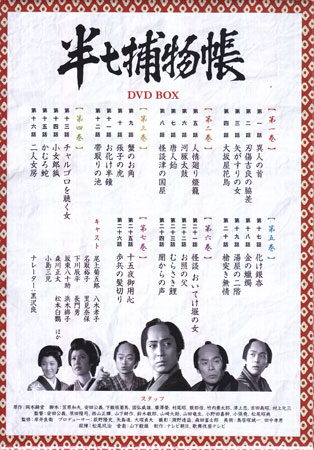 半七捕物帳
DVD BOX
【第一巻】
第一話　異人の首
第二話　刃傷吉良の脇差
第三話　矢がすりの女
第四話　大坂屋花鳥
【第二巻】
第五話　人情廻り燈籠
第六話　河豚太鼓
第七話　唐人飴
第八話　怪談津の国屋
【第三巻】
第九話　蟹のお角
第十話　張子の虎
第十一話　お化け半鐘
第十二話　帯取りの池
【第四巻】
第十三話　チャルゴロを聴く女
第十四話　小女郎狐
第十五話　かむろ蛇
第十六話　二人女房
【第五巻】
第十七話　化け銀杏
第十八話　金の蝋燭
第十九話　湯屋の二階
第二十話　槍突き無情
【第六巻】
第二十一話　怪談おいてけ堀の女
第二十二話　お照の父
第二十三話　むらさき鯉
第二十四話　闇からの声
【第七巻】
第二十五話　十五夜御用心
第二十六話　歩兵の髪切り
キャスト
尾上菊五郎　八木孝子
名取裕子　里見奈保
下川辰平　長門勇
坂東八十助　浜木綿子
森川正太　松本白鸚
小島三児　ほか
ナレーター：黒沢良
スタッフ